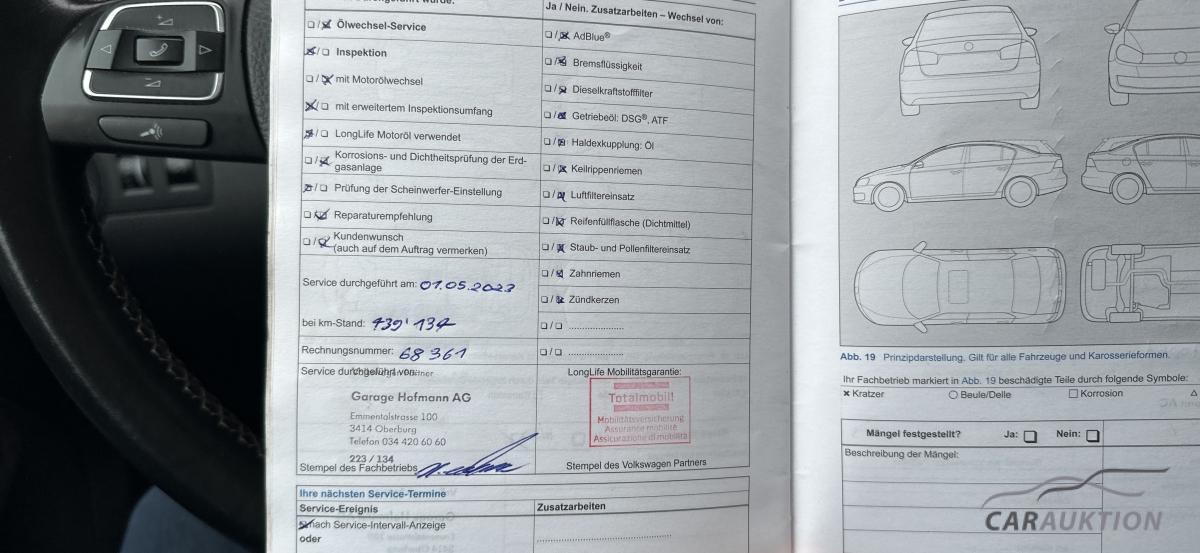 Ja / Nein. Zusatzarbeiten – Wechsel von:
Ölwechsel-Service
Inspektion
mit Motorölwechsel
mit erweitertem Inspektionsumfang
LongLife Motoröl verwendet
Korrosions- und Dichtheitsprüfung der Erd-
gasanlage
Prüfung der Scheinwerfer-Einstellung
Reparaturempfehlung
Kundenwunsch
(auch auf dem Auftrag vermerken)
AdBlue®
Bremsflüssigkeit
Dieselkraftstofffilter
Getriebeöl: DSG®, ATF
Haldexkupplung: Öl
Keilrippenriemen
Luftfiltereinsatz
Reifenfüllflasche (Dichtmittel)
Staub- und Pollenfiltereinsatz
Zahnriemen
Zündkerzen
Service durchgeführt am: 01.05.2023
bei km-Stand: 139'134
Rechnungsnummer: 68 361
Service durchgeführt von:
Garage Hofmann AG
Emmentalstrasse 100
3414 Oberburg
Telefon 034 420 60 60
223 / 134
Stempel des Fachbetriebs
LongLife Mobilitätsgarantie:
Totalmobil!
Mobilitätsversicherung
Assurance mobilité
Assicurazione di mobilità
Stempel des Volkswagen Partners
Ihre nächsten Service-Termine
Service-Ereignis
Zusatzarbeiten
nach Service-Intervall-Anzeige
oder
Abb. 19 Prinzipdarstellung. Gilt für alle Fahrzeuge und Karosserieformen.
Ihr Fachbetrieb markiert in Abb. 19 beschädigte Teile durch folgende Symbole:
Kratzer
Beule/Delle
Korrosion
Mängel festgestellt? Ja: Nein:
Beschreibung der Mängel:
CARAUKTION